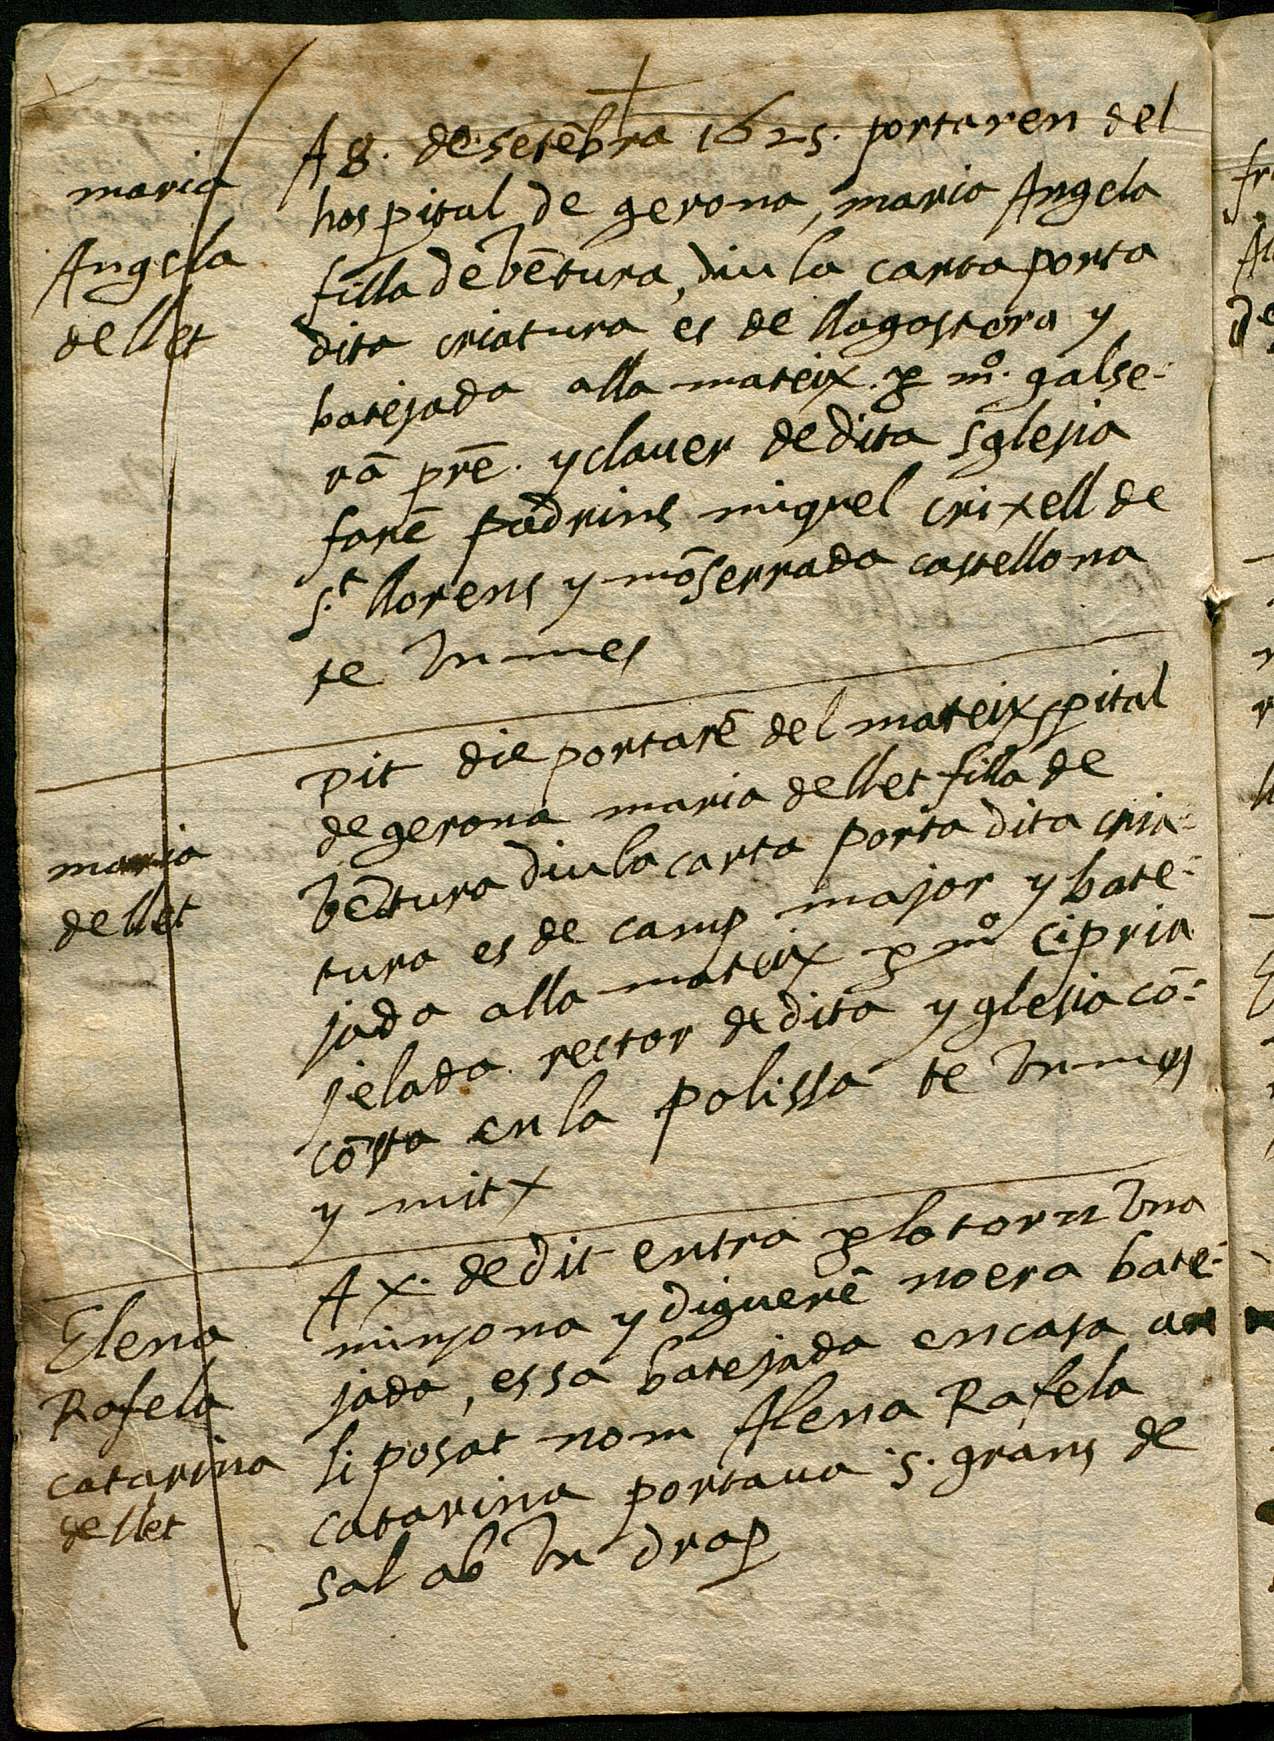 maria
Angela
de llet
A 8. de setēbra 1625. portaren del
hospital de gerona, maria Angela
filla de vētura, diu la carta porta
dita criatura es de llagostera y
batejada alla mateix. ꝑ mº. galse-
rā prē. y claver de dita sglesia
forē padrins miquel crixell de
s.t llorens y mōserrada castellona
te vn mes
maria
de llet
Dit die portarē del mateix spital
de gerona maria de llet filla de
vētura diu la carta porta dita cria-
tura es de camp major y bate-
jada alla mateix ꝑ mº cipria
jelada rector de dita yglesia cō-
cōsta en la polissa te vn mes
y mitx
Elena
Rafela
catarina
de llet
A X. de dit entra ꝑ lo torn vna
minyona y diguerē no era bate-
jada, essa batejada en casa an
li posat nom Alena Rafela
catarina portaua 5. grans de
sal ab vn drap